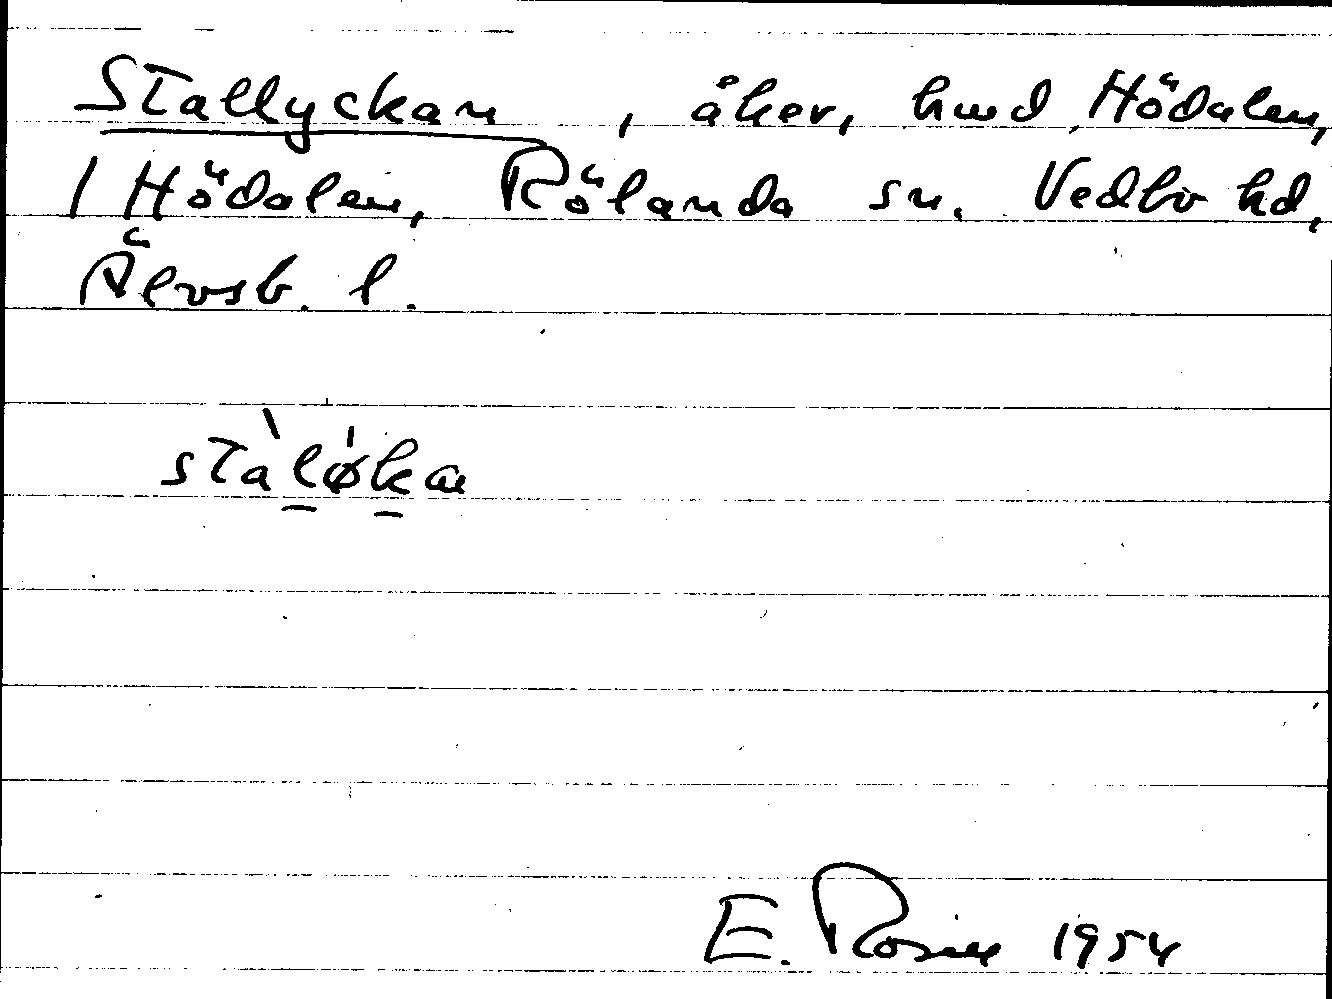 Stallyckan, åker, hmd Hödalen,
1 Hödalen, Rölanda sn. Vedbo hd,
Älvsb. l.
stàlø̍kan
E. Rosin 1954